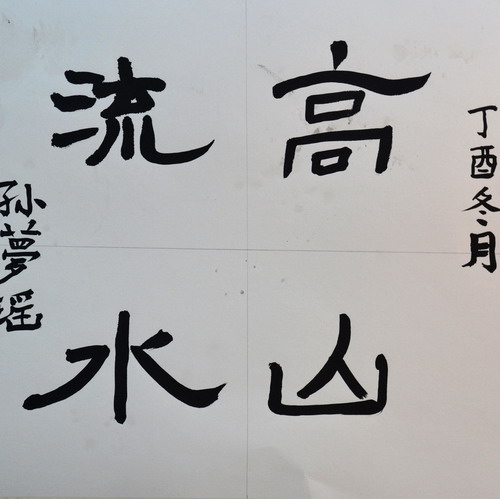 丁酉冬月
高山
流水
孙夢瑶